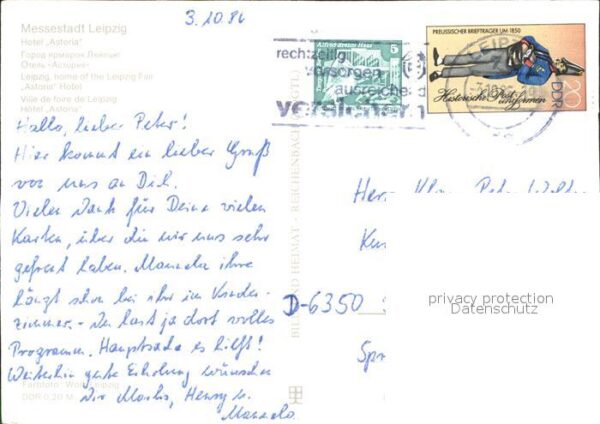 3.10.86
Messestadt Leipzig
Hotel „Astoria"
Город ярмарок Лейпциг
Отель «Астория»
Leipzig, home of the Leipzig Fair
„Astoria" Hotel
Ville de foire de Leipzig
Hôtel „Astoria"
Hallo, lieber Peter!
Hier kommt ein lieber Gruß
von uns an Dich.
Vielen Dank für Deine vielen
Karten, über die wir uns sehr
gefreut haben. Manuela ihre
hängt schon bei ihr im Kinder-
zimmer. - Du hast ja dort volles
Programm. Hauptsache es hilft!
Weiterhin gute Erholung wünschen
Dir Henry u.
Manuela
Farbfoto: Leipzig
DDR 0,20 M
BILD UND HEIMAT REICHENBACH
rechtzeitig
vorsorgen
ausreichend
versichern
5
PREUSSISCHER BRIEFTRÄGER UM 1850
Historische Postuniformen
DDR
20
LEIPZIG
Herr Peter
D-6350
privacy protection
Datenschutz